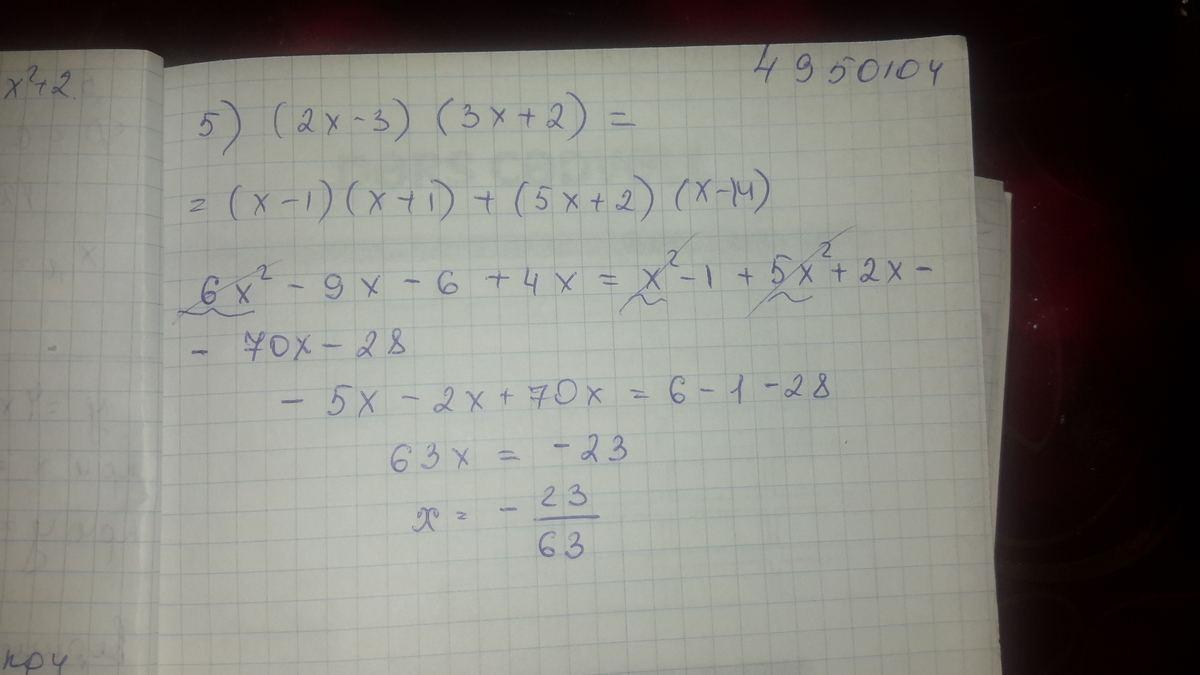 x²+2
4950104
5) (2x-3) (3x+2) =
= (x-1)(x+1) + (5x+2) (x-14)
6x² - 9x - 6 + 4x = x² - 1 + 5x² + 2x -
- 70x - 28
- 5x - 2x + 70x = 6 - 1 - 28
63x = -23
x = - 23/63
при